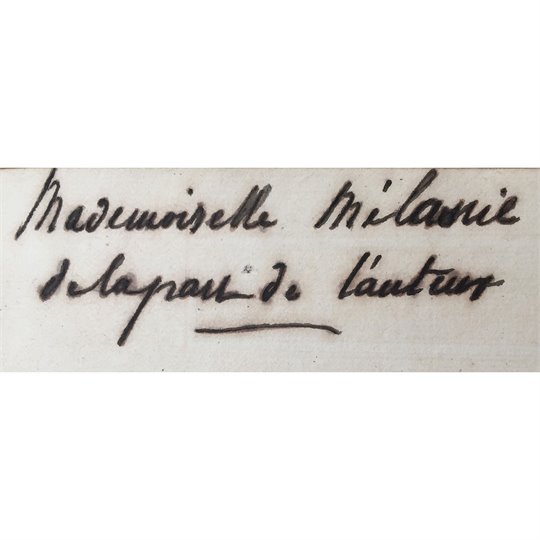 Mademoiselle Mélanie
de la part de l'auteur